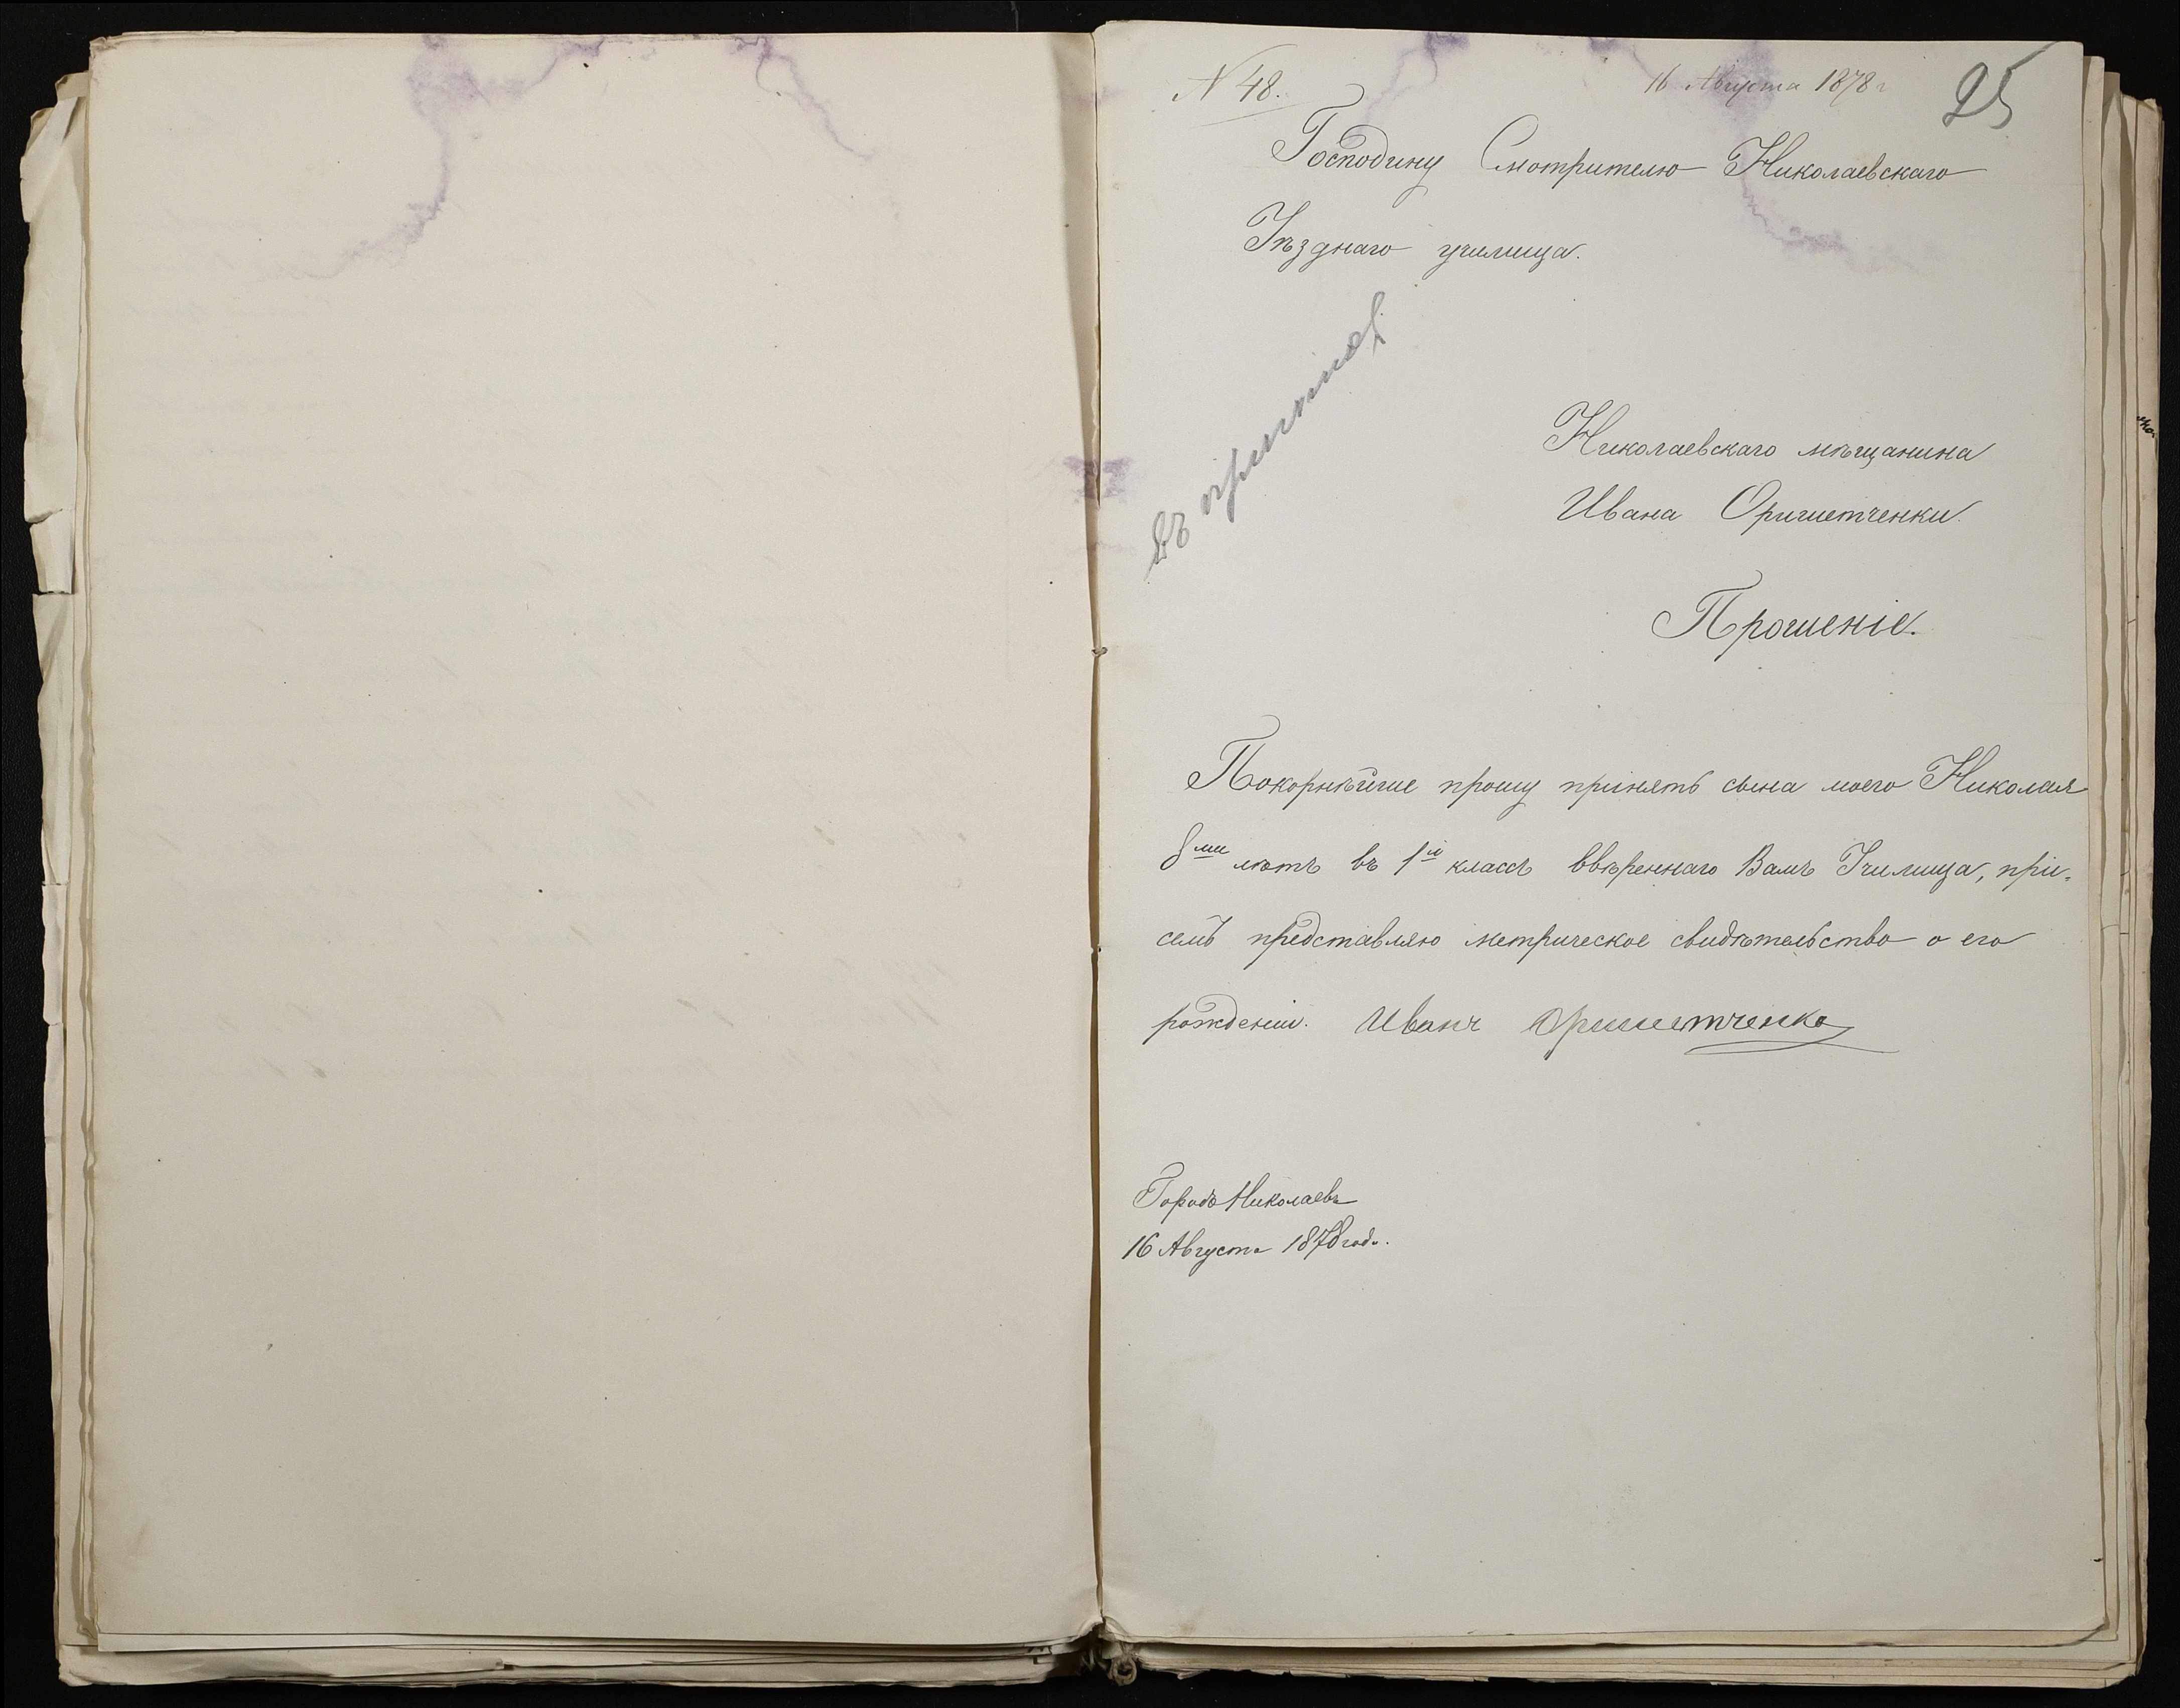 N 48.
16 Августа 1878 г
25
Господину Смотрителю Николаевскаго
Уѣзднаго училища.
Въ
Николаевскаго мѣщанина
Ивана Оришетченки.
Прошеніе.
Покорнѣйше прошу принять сына моего Николая
8ми лѣтъ въ 1й классъ ввѣреннаго Вамъ Училища, при-
семъ представляю метрическое свидѣтельство о его
рожденіи. Иванъ Оришетченко
Городъ Николаевъ
16 Августа 1878 года.